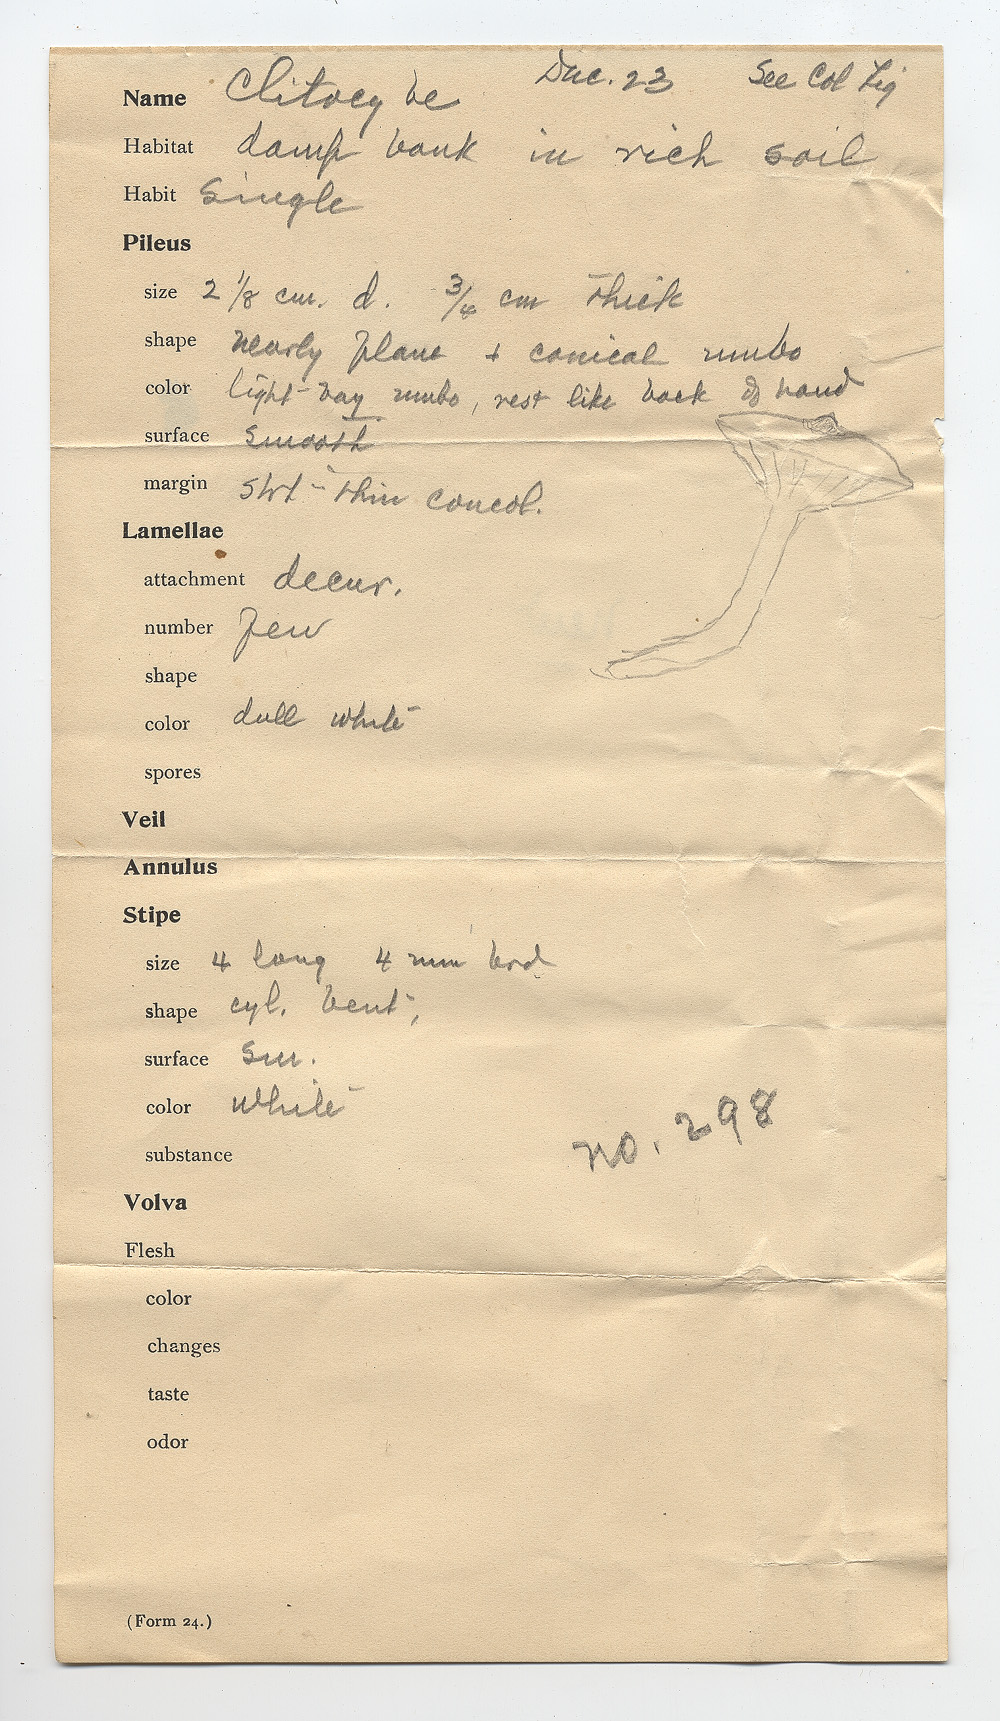 Name Clitocybe Dec. 23 See Col Fig
Habitat damp bank in rich soil
Habit Single
Pileus
size 2 1/8 cm. d. 3/4 cm thick
shape nearly plane + conical umbo
color light bay umbo, rest like back of hand
surface smooth
margin strt - thin concol.
Lamellae
attachment decur.
number few
shape
color dull white
spores
Veil
Annulus
Stipe
size 4 long 4 mm brd
shape cyl. bent,
surface sm.
color white
no. 298
substance
Volva
Flesh
color
changes
taste
odor
(Form 24.)